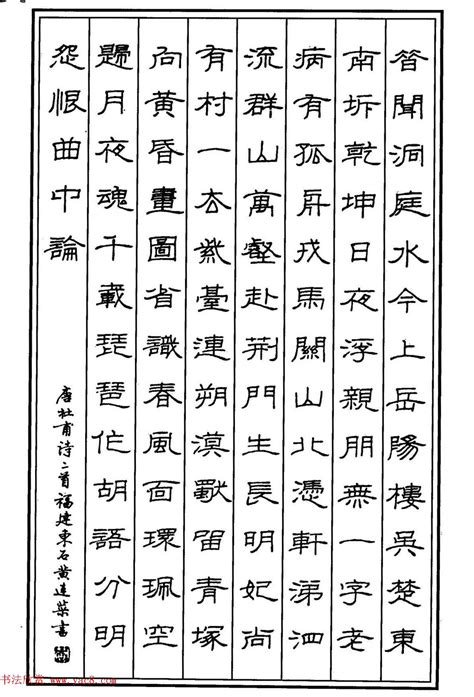 昔聞洞庭水今上岳陽樓吳楚東
南坼乾坤日夜浮親朋無一字老
病有孤舟戎馬關山北憑軒涕泗
流群山萬壑赴荊門生長明妃尚
有村一去紫臺連朔漠獨留青塚
向黃昏畫圖省識春風面環珮空
歸月夜魂千載琵琶作胡語分明
怨恨曲中論
唐杜甫诗二首福建東石黄書
书法欣赏 www.yac8.com